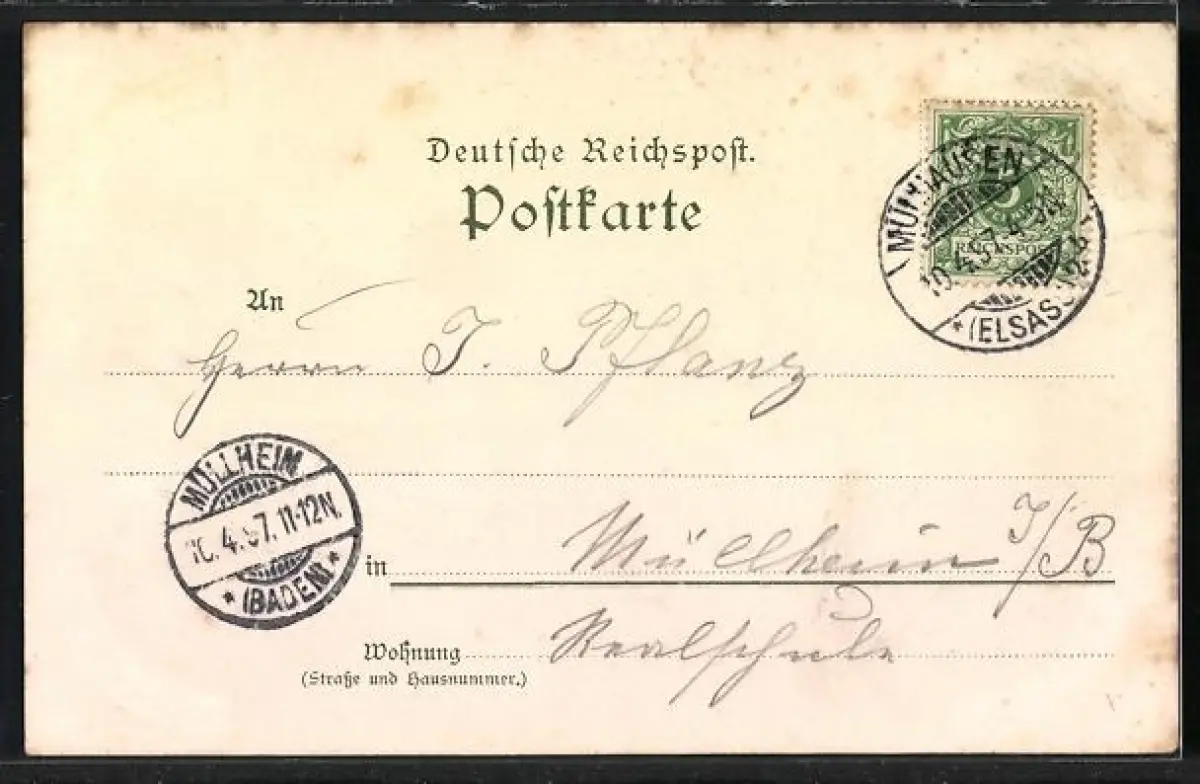 Deutsche Reichspost.
Postkarte
MÜLHAUSEN
10.4.97. 4-5N
* (ELSASS)
REICHSPOST
An
Herrn J. Pflanz
MÜLLHEIM
10.4.97.11-12N.
* (BADEN) *
in Müllheim i/B
Wohnung Realschule
(Straße und Hausnummer.)